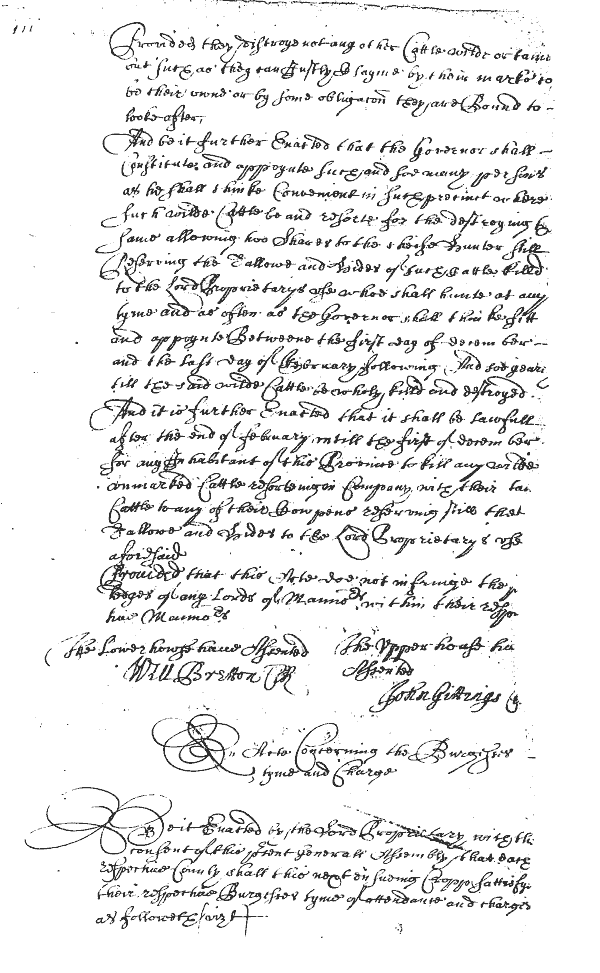 111
Provided they distroye not any other Cattle wilde or tame
but such as they can Justly Clayme by their marke to
be their owne or by some obligacon they are Bound to
looke after,
And be it further Enacted that the Governor shall
Constitute and appoynte such and soe many persons
as he shall thinke Convenient in such precinct where
such wilde Cattle be and resorte for the destroying the
same allowing two Shares to the cheife Hunter still
Reserving the Tallowe and Hides of such Cattle killd
to the Lord Proprietarys vse whoe shall hunte at any
tyme and as often as the Governor shall thinke fitt
and appoynte Betweene the first day of december
and the last day of February following And soe yearly
till the said wilde Cattle be wholy killd and destroyed.
And it is further Enacted that it shall be lawfull
after the end of february vntill the first of december
for any Inhabitant of this Province to kill any wilde
vnmarked Cattle resorteing in Company with their
Cattle to any of their Cowpens reserving still the
Tallowe and Hides to the Lord Proprietarys vse
aforesaid
Provided that this Acte doe not infringe the
leges of any Lords of Mannors within their
tive Mannors
The Lower house have Assented The Vpper house
Will Bretton Assented
John Gittings
An Acte Concerning the Burgesses
tyme and Charge
Be it Enacted by the Lord Proprietary with the
consent of this present generall Assembly that each
respective County shall this next ensueing Cropp sattisfy
their respective Burgesses tyme of attendance and charges
as followeth vizt